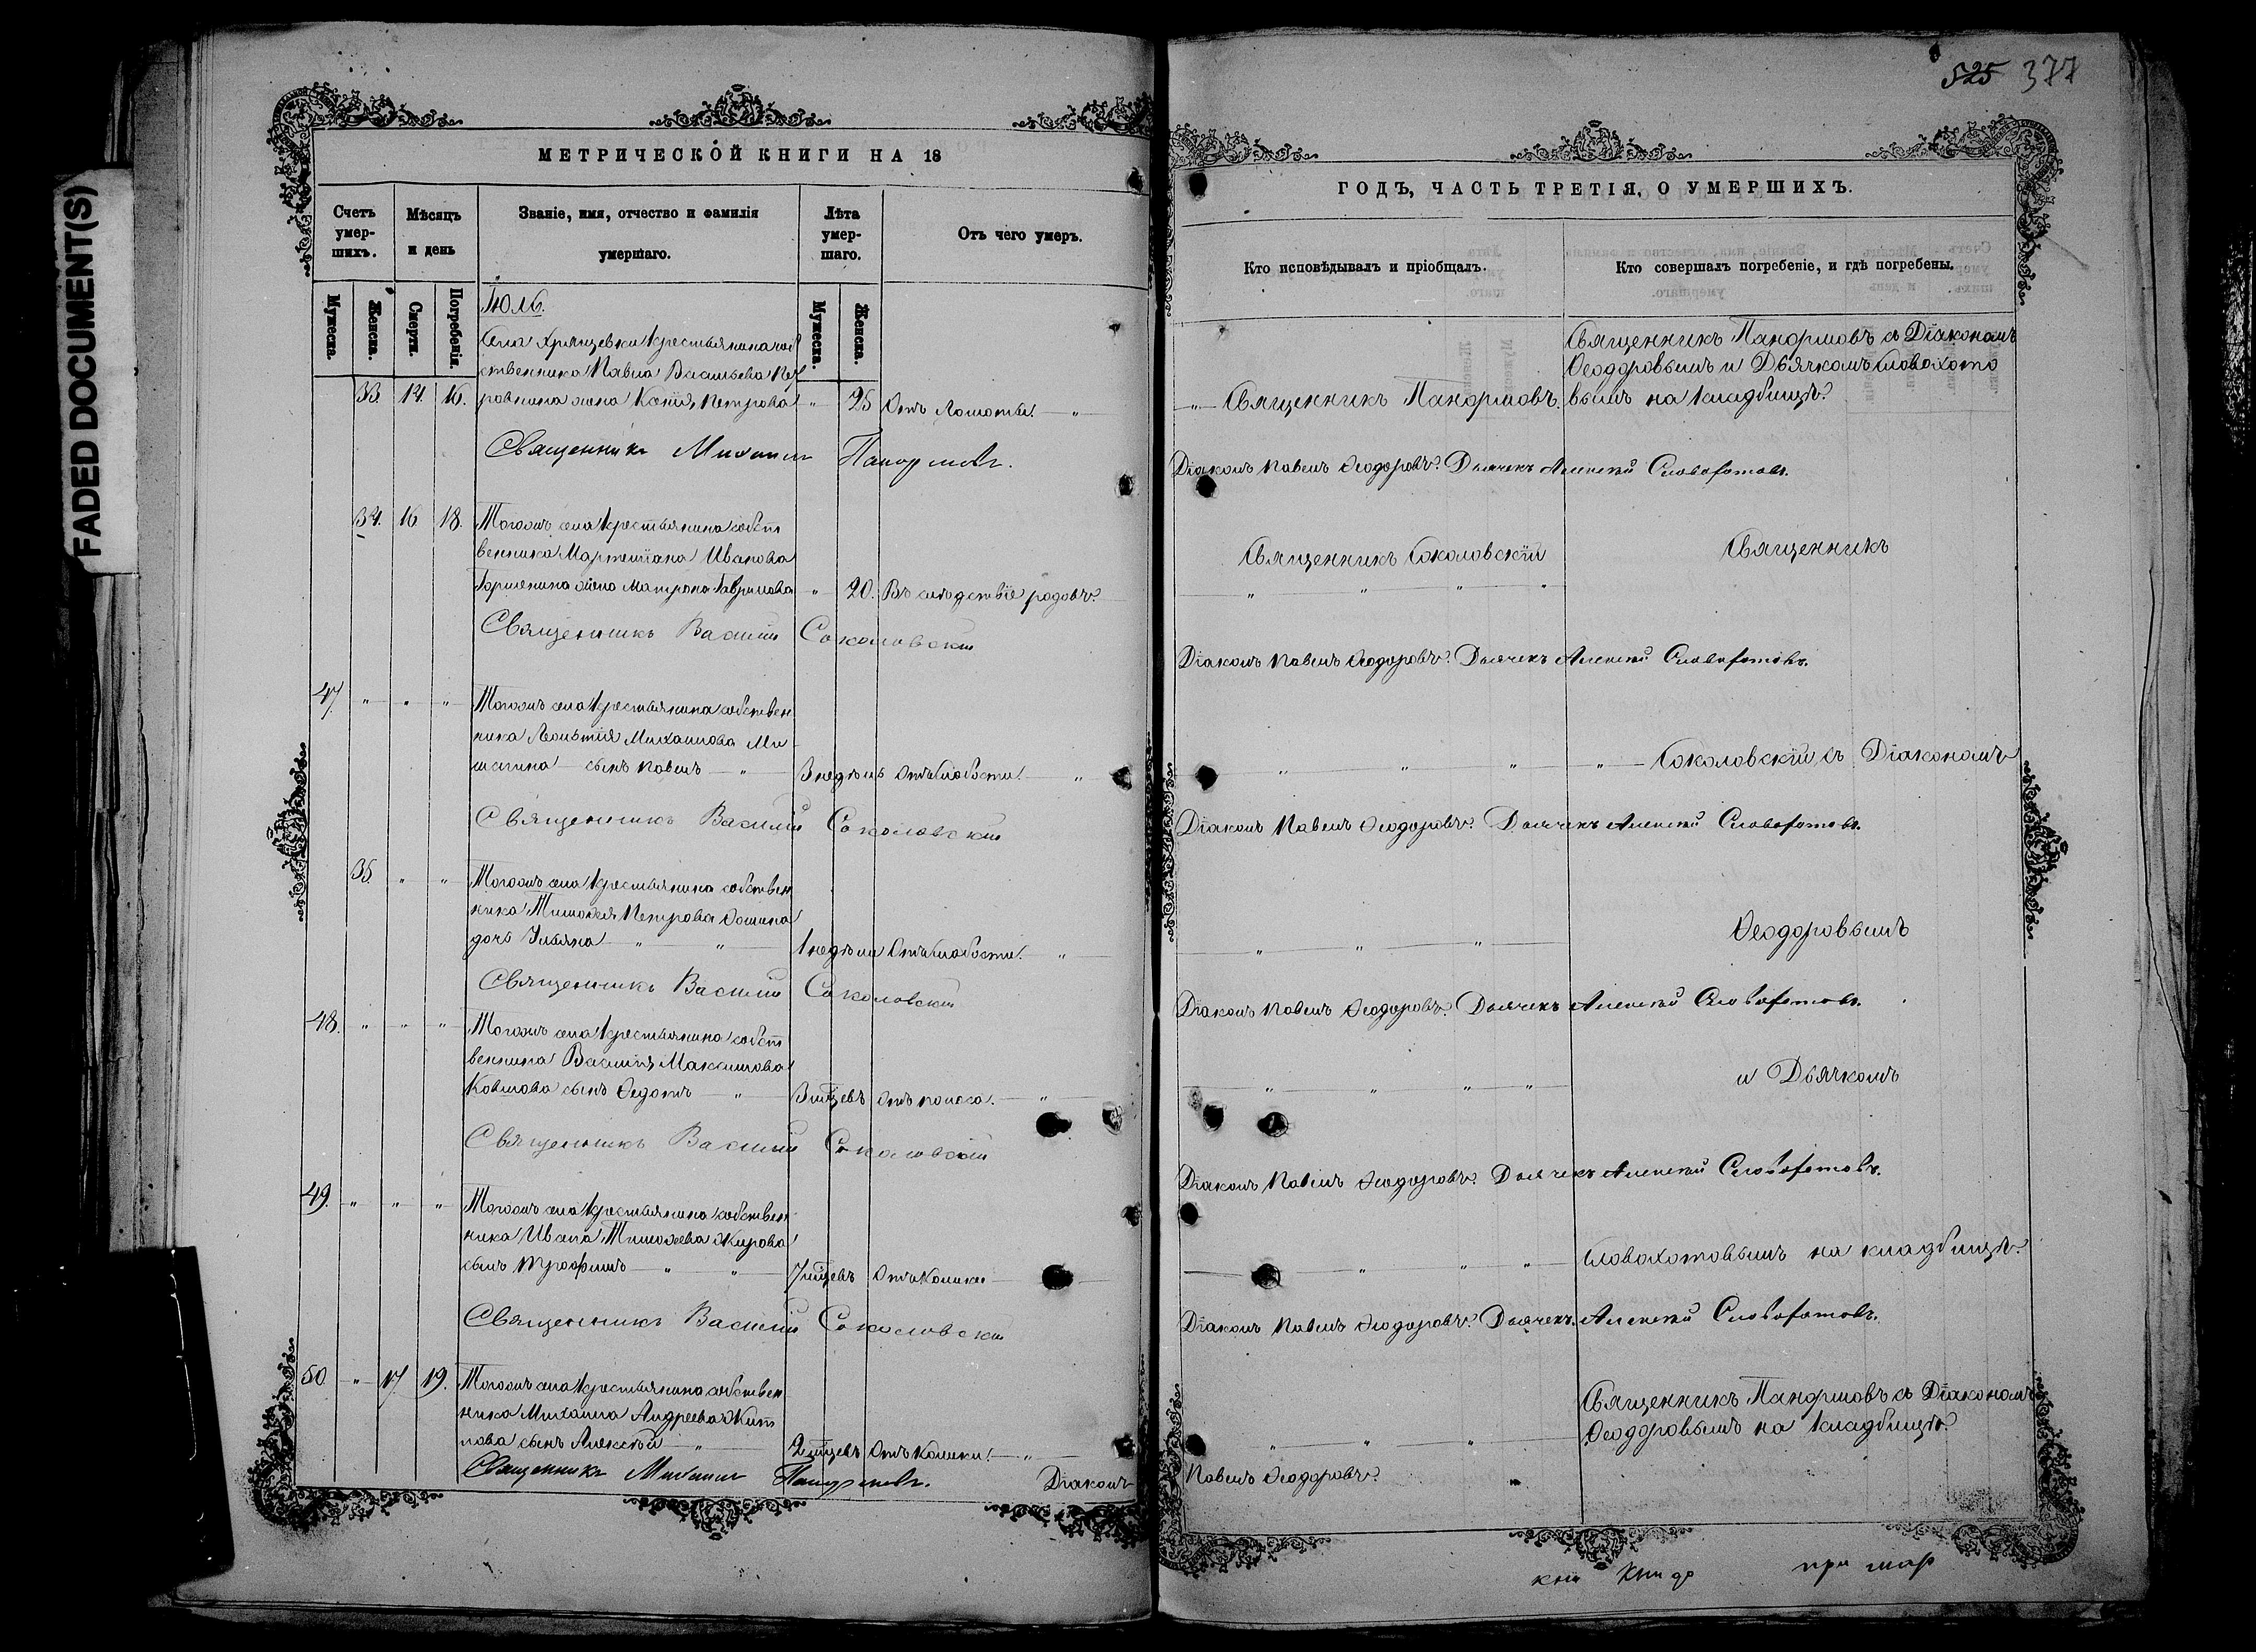 FADED DOCUMENT(S)
525 377
МЕТРИЧЕСКОЙ КНИГИ НА 18
Счетъ умер-шихъ.
Мѣсяцъ и день
Званіе, имя, отчество и фамилія умершаго.
Лѣта умер-шаго.
Отъ чего умеръ.
Мужеска.
Женска.
Смерти.
Погребенія.
Мужеска.
Женска.
Іюль.
Села Хрящевки крестьянина соб
ственника Павла Васильева Пет
33. 14. 16. ровнина жена Ксенія Петрова " 25 Отъ ломоты. "
Священникъ Михаилъ Панормовъ.
34. 16 18. Тогожъ села крестьянина собст
венника Мартиніана Иванова
жена Матрона Гаврилова " 20. Въ слѣдствіе родовъ.
Священникъ Василій Соколовскій
47 " " " Тогожъ села крестьянина собствен
ника Леонтія Михайлова Ми
шагина сынъ Павелъ " 3 недѣль Отъ слабости. "
Священникъ Василій Соколовскій
35. " " Тогожъ села крестьянина собствен
ника Тимоѳея Петрова Ѳомина
дочь Ульяна " " 1 недѣли Отъ слабости. "
Священникъ Василій Соколовскій
48. " " " Тогожъ села крестьянина собст
венника Василія Максимова
Ковылова сынъ Ѳедотъ " 3 мѣсцевъ Отъ поноса. "
Священникъ Василій Соколовскій
49. " " " Тогожъ села крестьянина собствен
ника Ивана Тимоѳеева Жирова
сынъ Трофимъ " " 7 мѣсцевъ Отъ колики
Священникъ Василій Соколовскій
50 " 17 19. Тогожъ села крестьянина собствен
ника Михаила Андреева
сынъ Алексѣй " 2 мѣсцевъ Отъ колики. "
Священникъ Михаилъ Панормовъ. Діаконъ
ГОДЪ, ЧАСТЬ ТРЕТІЯ, О УМЕРШИХЪ.
Кто исповѣдывалъ и пріобщалъ.
Кто совершалъ погребеніе, и гдѣ погребены.
Священникъ Панормовъ съ Діакономъ
Ѳеодоровымъ и Дьячкомъ Словохото
" Священникъ Панормовъ. вымъ на кладбищѣ.
Діаконъ Павелъ Ѳеодоровъ. Дьячекъ Алексѣй Словохотовъ.
Священникъ Соколовскій Священникъ
" " " "
Діаконъ Павелъ Ѳеодоровъ. Дьячекъ Алексѣй Словохотовъ.
" " " " Соколовскій съ Діакономъ
Діаконъ Павелъ Ѳеодоровъ. Дьячекъ Алексѣй Словохотовъ.
" " " Ѳеодоровымъ
Діаконъ Павелъ Ѳеодоровъ. Дьячекъ Алексѣй Словохотовъ.
" " " " и Дьячкомъ
Діаконъ Павелъ Ѳеодоровъ. Дьячекъ Алексѣй Словохотовъ.
" " " Словохотовымъ на кладбищѣ.
Діаконъ Павелъ Ѳеодоровъ. Дьячекъ Алексѣй Словохотовъ.
Священникъ Панормовъ съ Діакономъ
" " " Ѳеодоровымъ на кладбищѣ.
Павелъ Ѳеодоровъ.